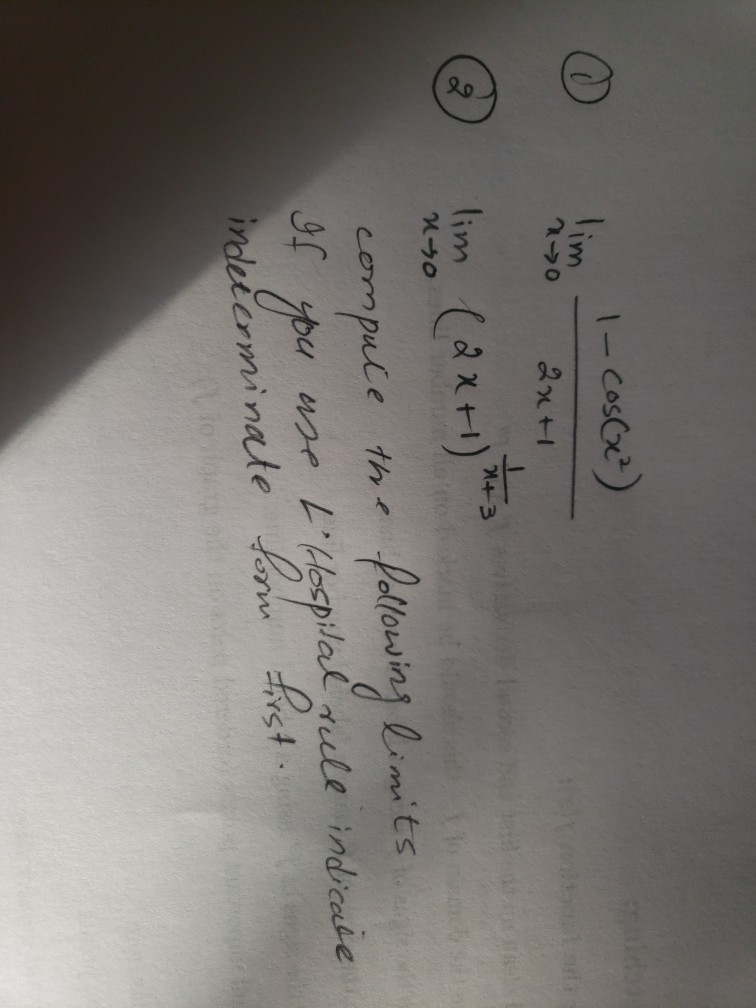 ① lim x→0 1 - cos(x²) / 2x+1
② lim x→0 (2x+1)^(1/x+3)
compute the following limits
If you use L'Hospital rule indicate
indeterminate form first.